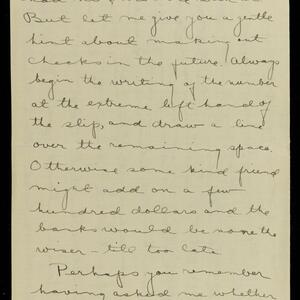 But let me give you a gentle
hint about making out
checks in the future. Always
begin the writing of the number
at the extreme left hand of
the slip, and draw a line
over the remaining space.
Otherwise some kind friend
might add on a few
hundred dollars and the
banks would be none the
wiser – till too late
Perhaps you remember
having asked me whether